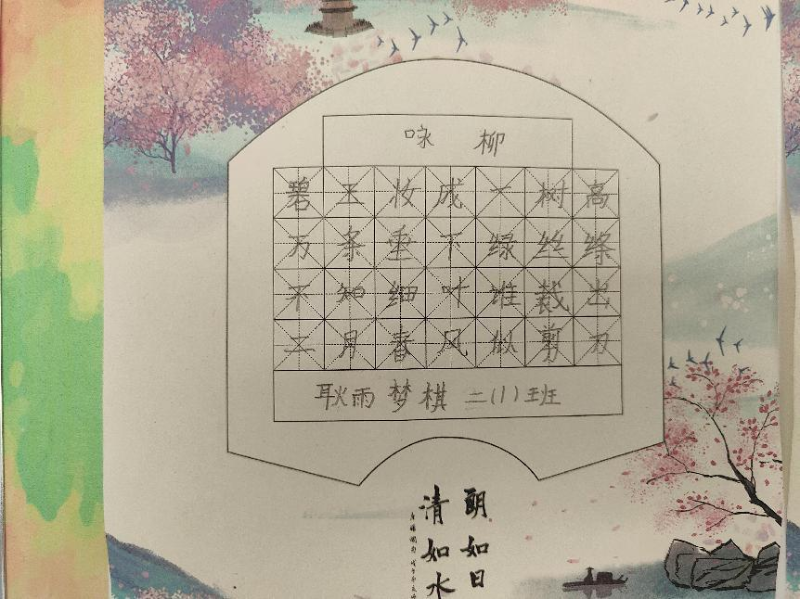 咏柳
碧玉妆成一树高
万条垂下绿丝绦
不知细叶谁裁出
二月春风似剪刀
耿雨梦棋 二(1)班
朗如日
清如水